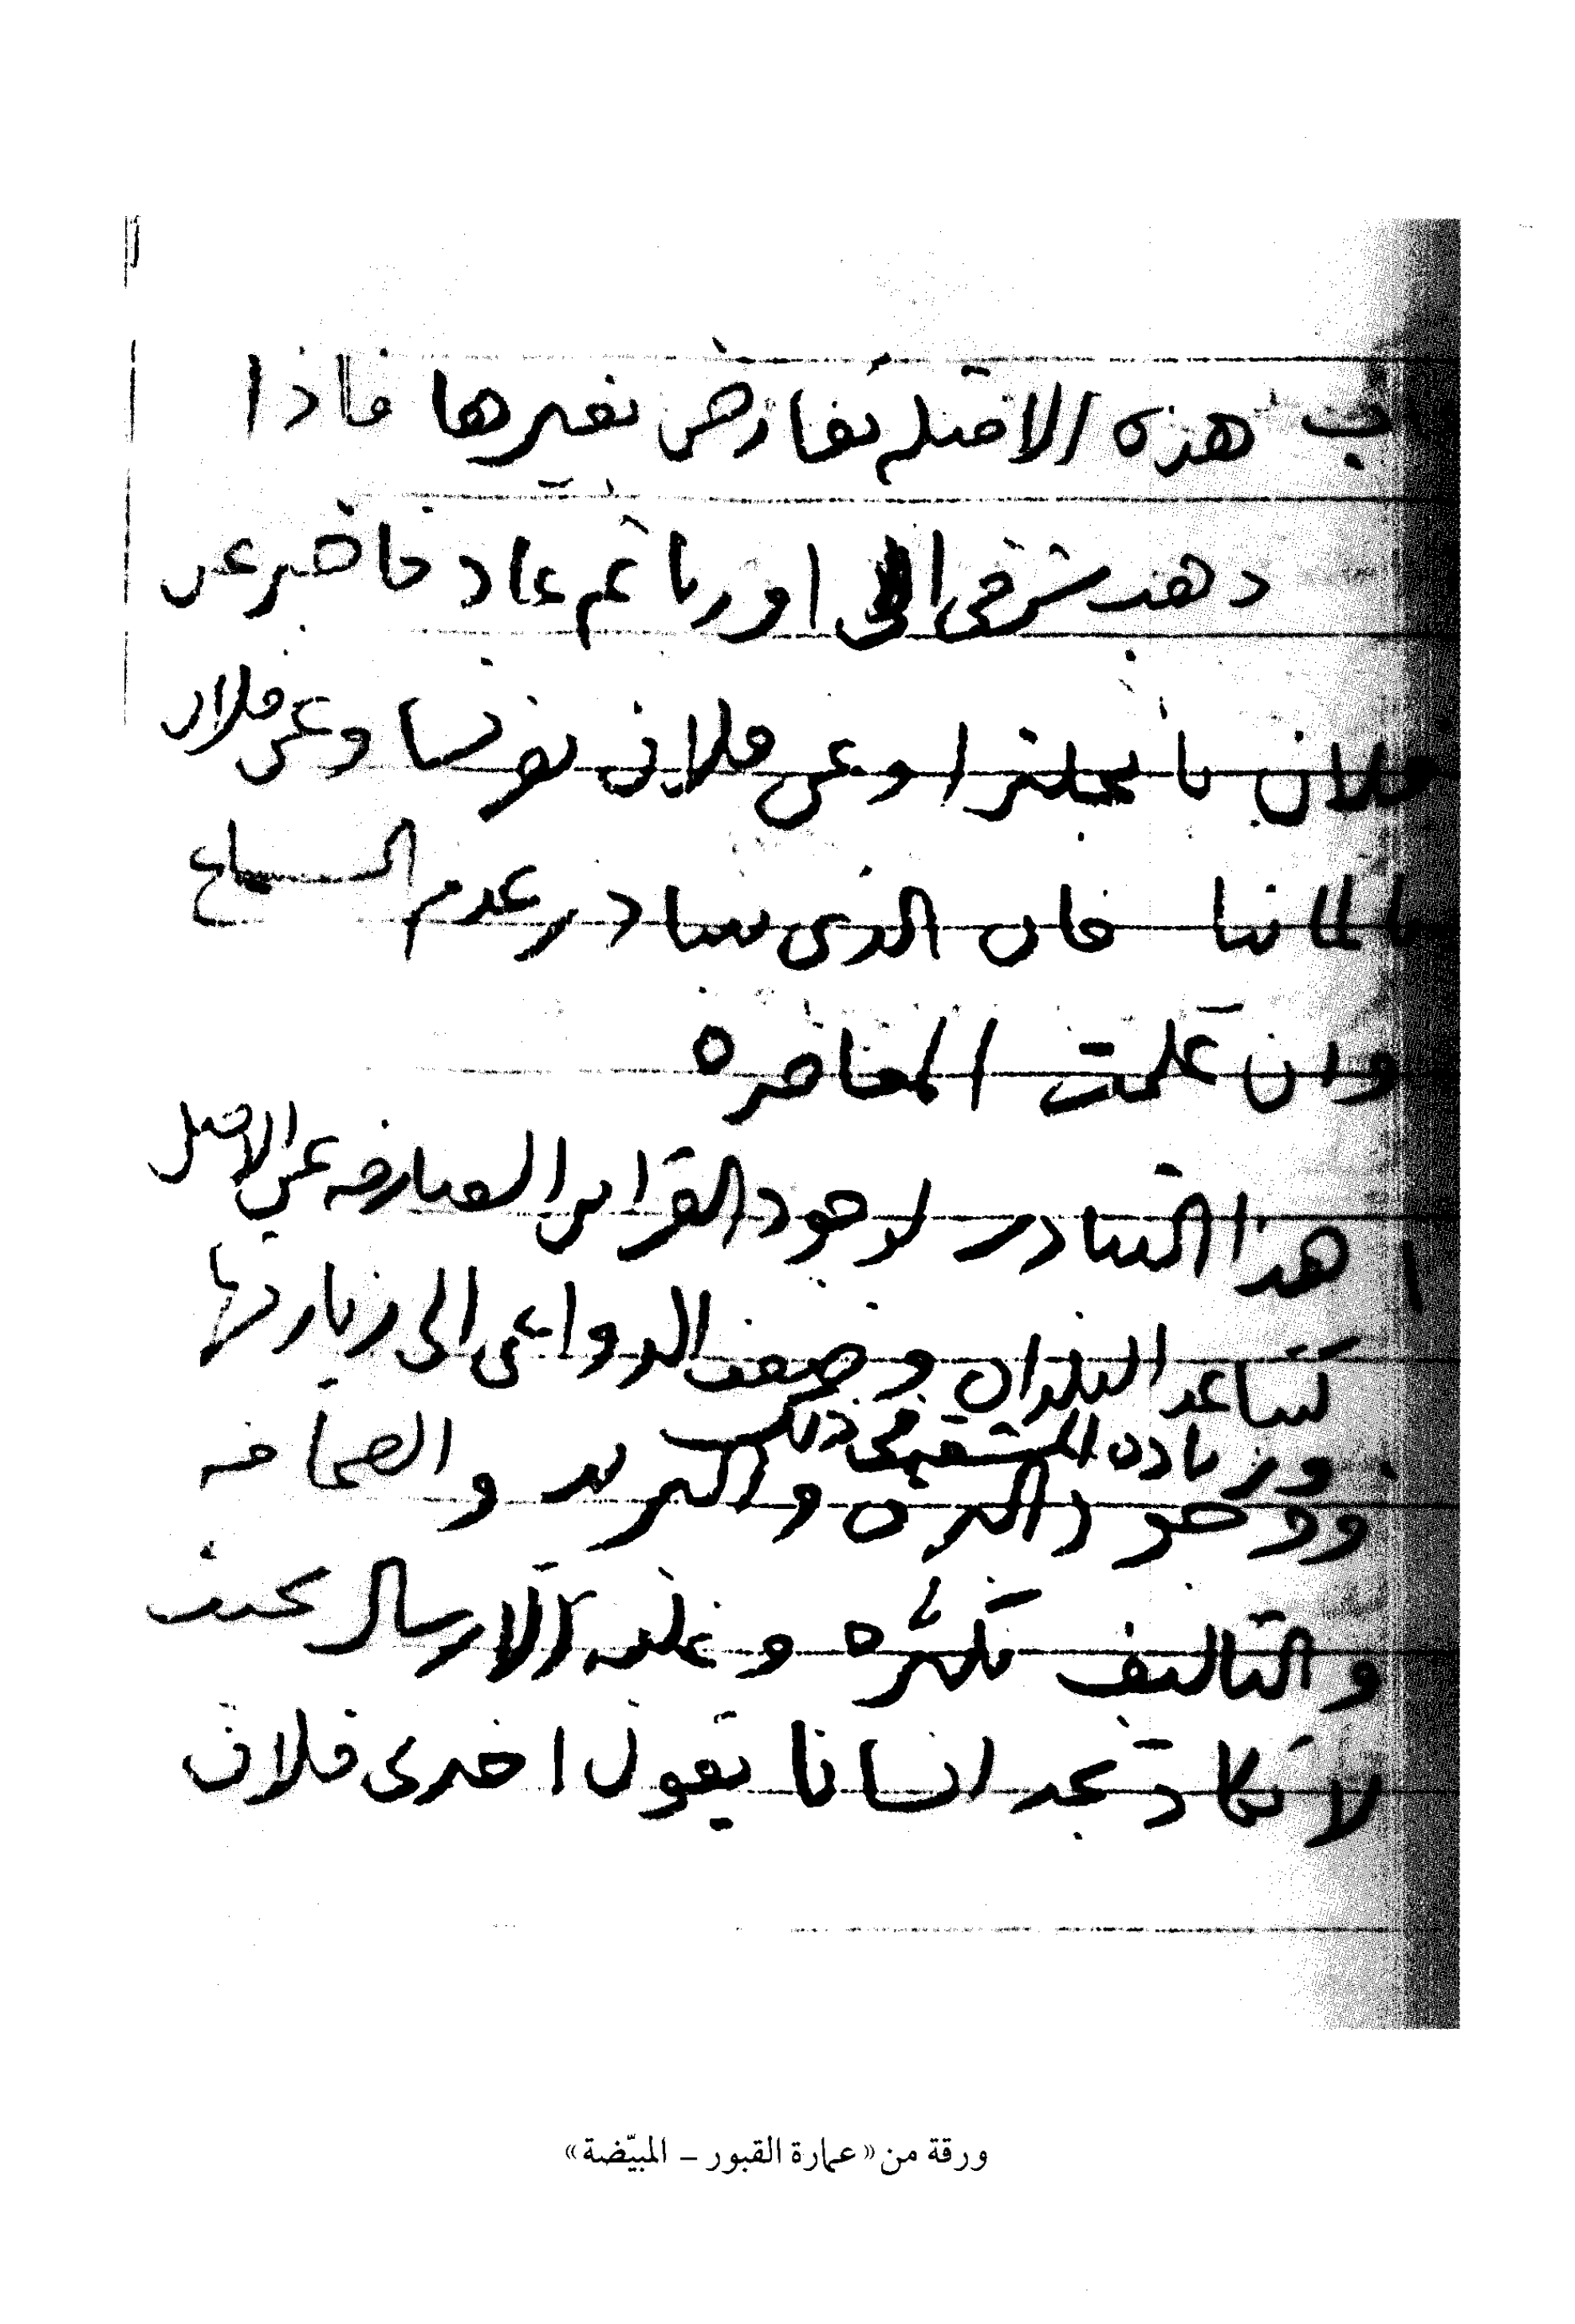 هذه الامثلة تعارض بغيرها فاذا
ذهب شرقي الى اوربا ثم عاد فاخبر عن
فلان بانجلترا وعن فلان بفرنسا وعن فلان
بالمانيا فان الذي يتبادر عدم السماع
وان علمت المعاصرة
هذا التبادر لوجود القرائن الصارفة عن الاصل
كتباعد البلدان وضعف الدواعي الى زيارتها
وزيادة المشقة في ذلك
ووجود البرق والبريد والصحافة
والتآليف بكثرة وغلبة الارسال بحيث
لا تكاد تجد انسانا يقول اخبرني فلان
ورقة من «عمارة القبور – المبيّضة»